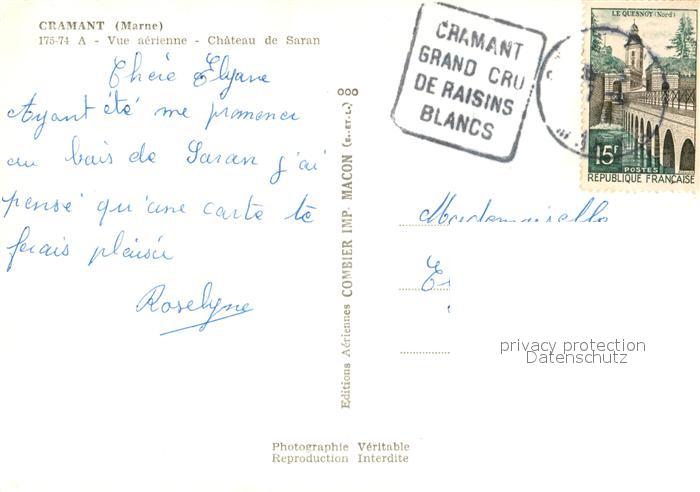 CRAMANT (Marne)
175-74 A - Vue aérienne - Château de Saran
Chère Elyane
Ayant été me promener
au bois de Saran j'ai
pensé qu'une carte te
ferais plaisir
Roselyne
Editions Aériennes COMBIER IMP. MACON (S.-ET-L.)
000
CRAMANT
GRAND CRU
DE RAISINS
BLANCS
LE QUESNOY (Nord)
15F
POSTES
REPUBLIQUE FRANÇAISE
Mademoiselle
privacy protection
Datenschutz
Photographie Véritable
Reproduction Interdite